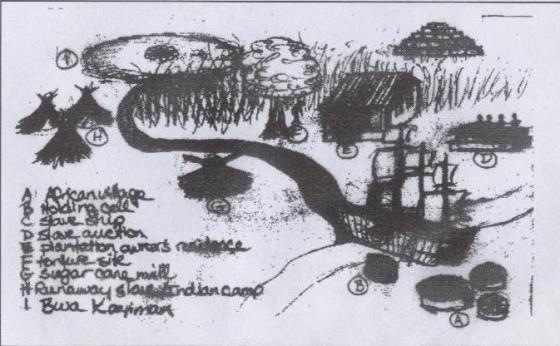 A African village
B Holding cell
C slave ship
D slave auction
E plantation owner's residence
F torture site
G sugar cane mill
H Runaway slave Indian camp
I Bwa Kayiman
H
E
D
G
B
A